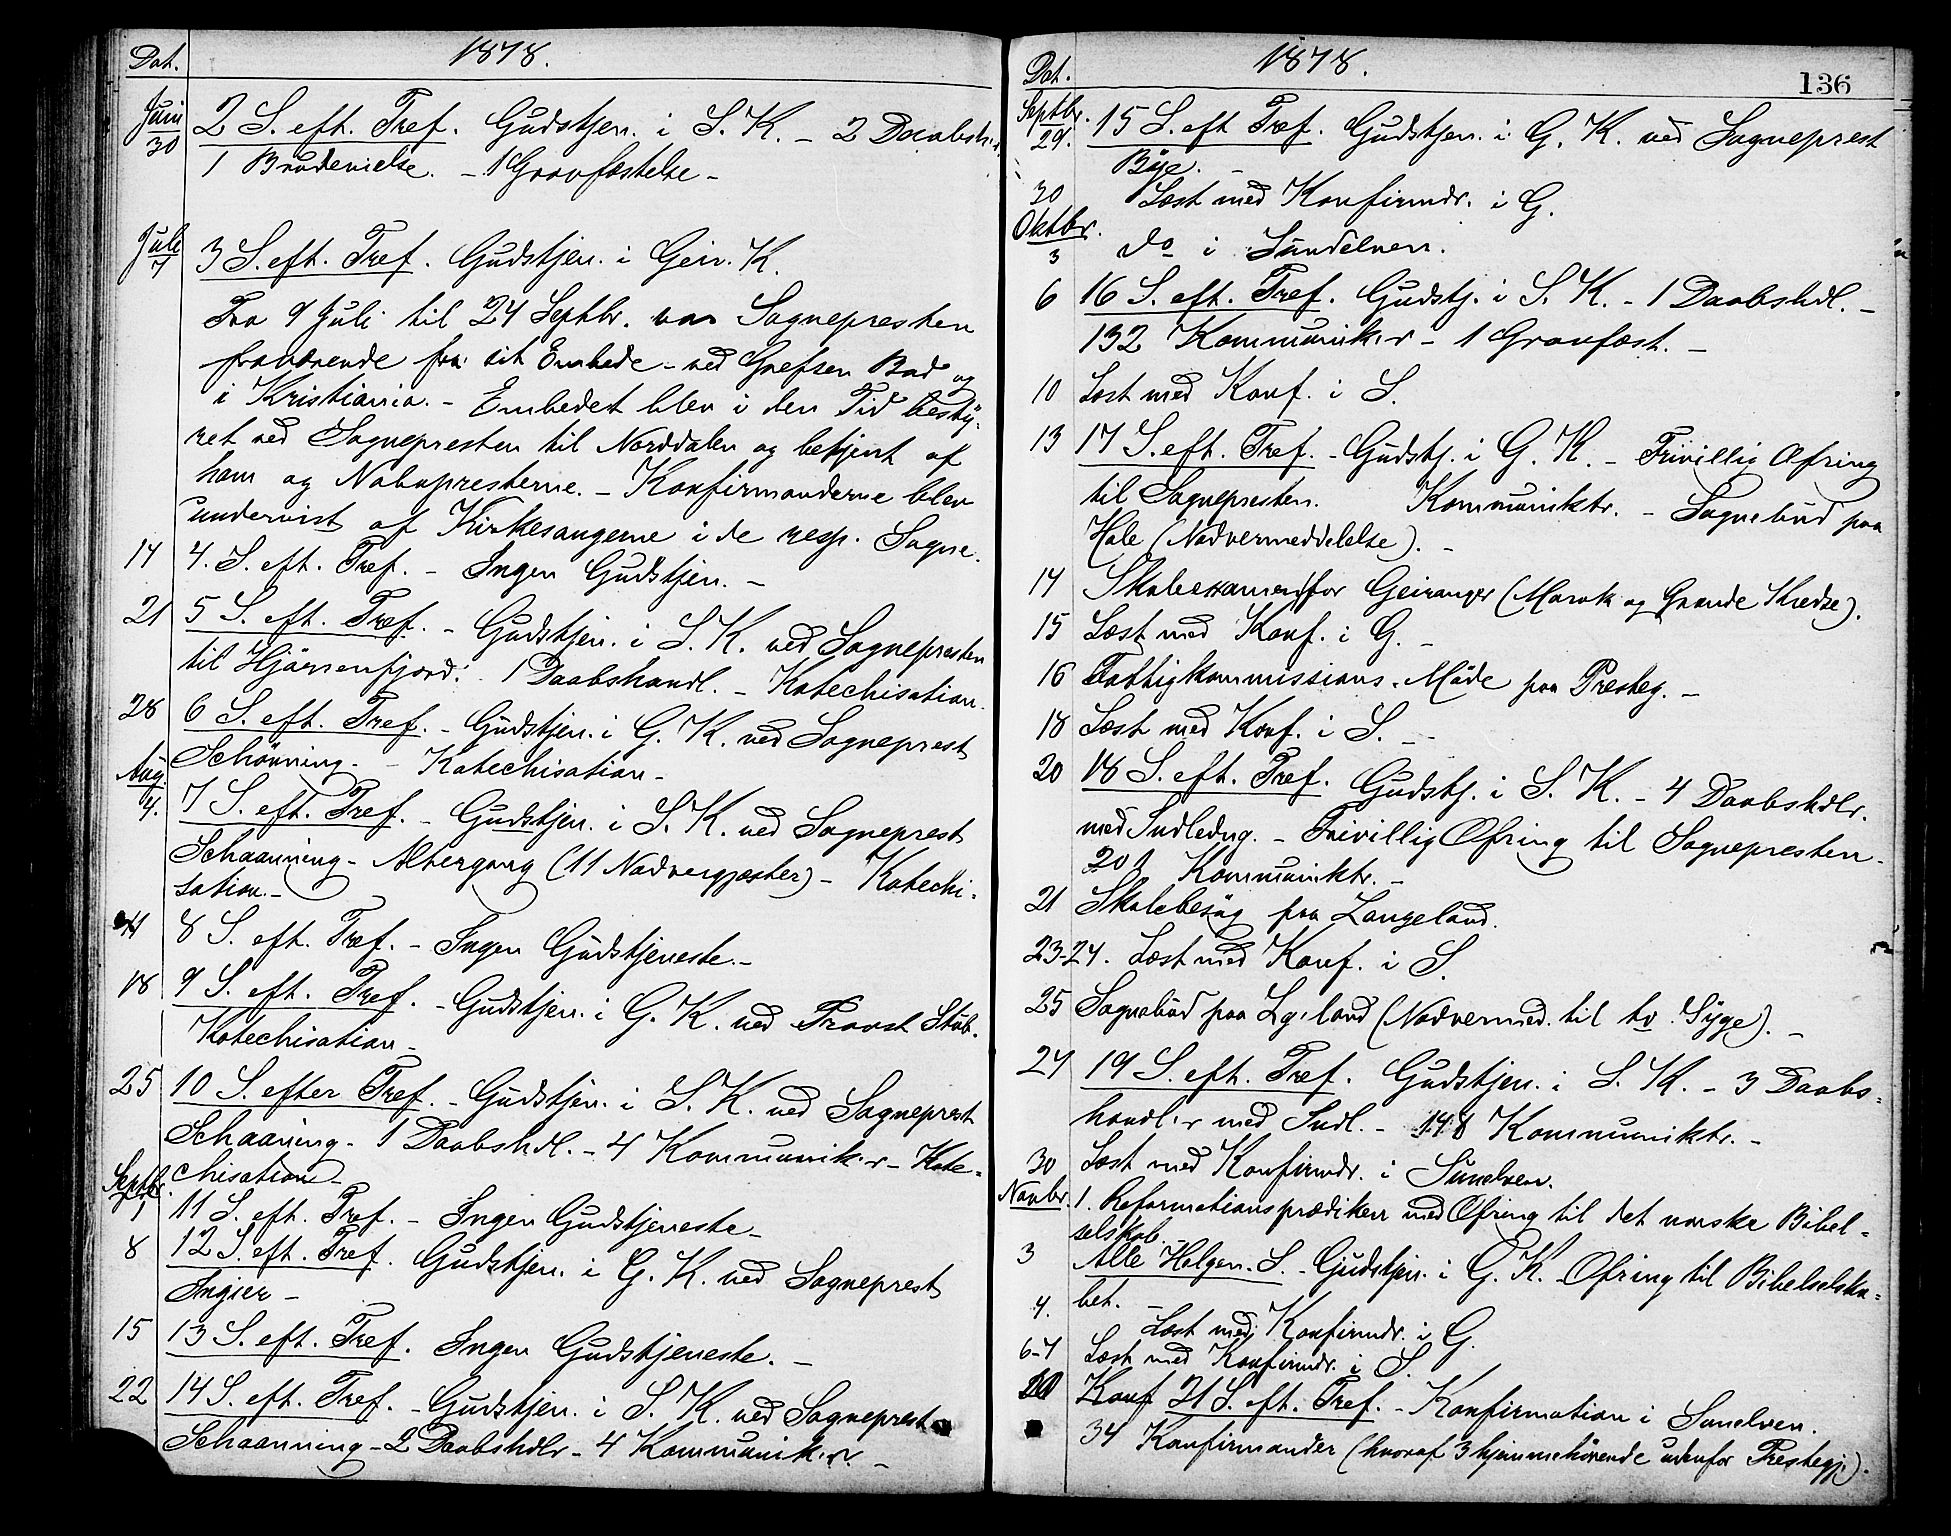 Dat. 1878.
Juni 30 2 S. eft. Tref. Gudstjen. i S. K. – 2 Daabsh.
1 Brudevielse. – 1 Gravfæstelse –
Juli 7 3 S. eft. Tref. Gudstjen. i Geir. K.
Fra 9 Juli til 24 Septbr. var Sognepresten
fraværende fra sit Embede – ved Grefsen Bad og
i Kristiania. – Embedet blev i den Tid besty-
ret ved Sognepresten til Norddalen og betjent af
ham og Nabopresterne. – Konfirmanderne blev
undervist af Kirkesangerne i de resp. Sogne.
14 4. S. eft. Tref. – Ingen Gudstjen. –
21 5 S. eft. Tref. – Gudstjen. i S. K. ved Sognepresten
til Hjørrenfjord: 1 Daabshandl. – Katechisation.
28 6 S. eft. Tref. – Gudstjen. i G. K. ved Sogneprest
Schönning. – Katechisation –
Aug. 4. 7 S. eft. Tref. – Gudstjen. i S. K. ved Sogneprest
Schaanning – Altergang (11 Nadvergjæster) – Katechi-
sation. –
11 8 S. eft. Tref. – Ingen Gudstjeneste. –
18 9 S. eft. Tref. – Gudstjen. i G. K. ved Provst Stub.
Katechisation –
25 10 S. efter Tref. – Gudstjen. i S. K. ved Sogneprest
Schaaning – 1 Daabshdl. – 4 Kommunik.r – Kate-
chisation –
Septbr. 1 11 S. eft. Tref. – Ingen Gudstjeneste –
8 12 S. eft. Tref. Gudstjen. i G. K. ved Sogneprest
Ingier –
15 13 S. eft. Tref. Ingen Gudstjeneste. –
22 14 S. eft. Tref. – Gudstjen. i S. K. ved Sogneprest
Schaanning – 2 Daabshdlr – 4 Kommunik.r. –
Dat. 1878. 136
Septbr. 29. 15 S. eft Tref. Gudstjen. i G. K. ved Sogneprest
Bøje. –
30 Læst med Konfirmdr. i G.
Oktbr. 3 do i Sundelven.
6 16 S. eft. Tref. Gudstj. i S. K. – 1 Daabshdl. –
132 Kommunik.r – 1 Gravfæst. –
10 Læst med Konf. i S.
13 17 S. eft. Tref. – Gudstj. i G. K. – Frivillig Ofring
til Sognepresten. Kommuniktr. – Sognebud paa
Hole (Nadvermeddelelse). –
14 Skoleexamen for Geiranger (Marok og Grande Kredse).
15 Læst med Konf. i G. –
16 Fattigkommissions-Møde paa Presteg. –
18 Læst med Konf. i S. –
20 18 S. eft. Tref. Gudstj. i S. K. – 4 Daabshdlr.
med Indledng. – Frivillig Ofring til Sognepresten –
201 Kommuniktr. –
21 Skolebesøg paa Langeland.
23-24. Læst med Konf. i S.
25 Sognebud paa Lg.land (Nadvermed. til to Syge). –
27 19 S. eft. Tref. Gudstjen. i S. K. – 3 Daabs-
handl.r med Indl. – 148 Kommuniktr. –
30 Læst med Konfirmdr. i Sunelven.
Novbr. 1. Reformationsprædiken med Ofring til det norske Bibel-
selskab. –
3 Alle Helgen. S. – Gudstjen. i G. K. – Ofring til Bibelselska-
bet. –
4. Læst med Konfirmdr. i G.
6-7 Læst med Konfirmdr. i S.
10 Konf 21 S. eft. Tref. – Konfirmation i Sunelven.
34 Konfirmander (hvoraf 3 hjemmehörende udenfor Prestegj.).